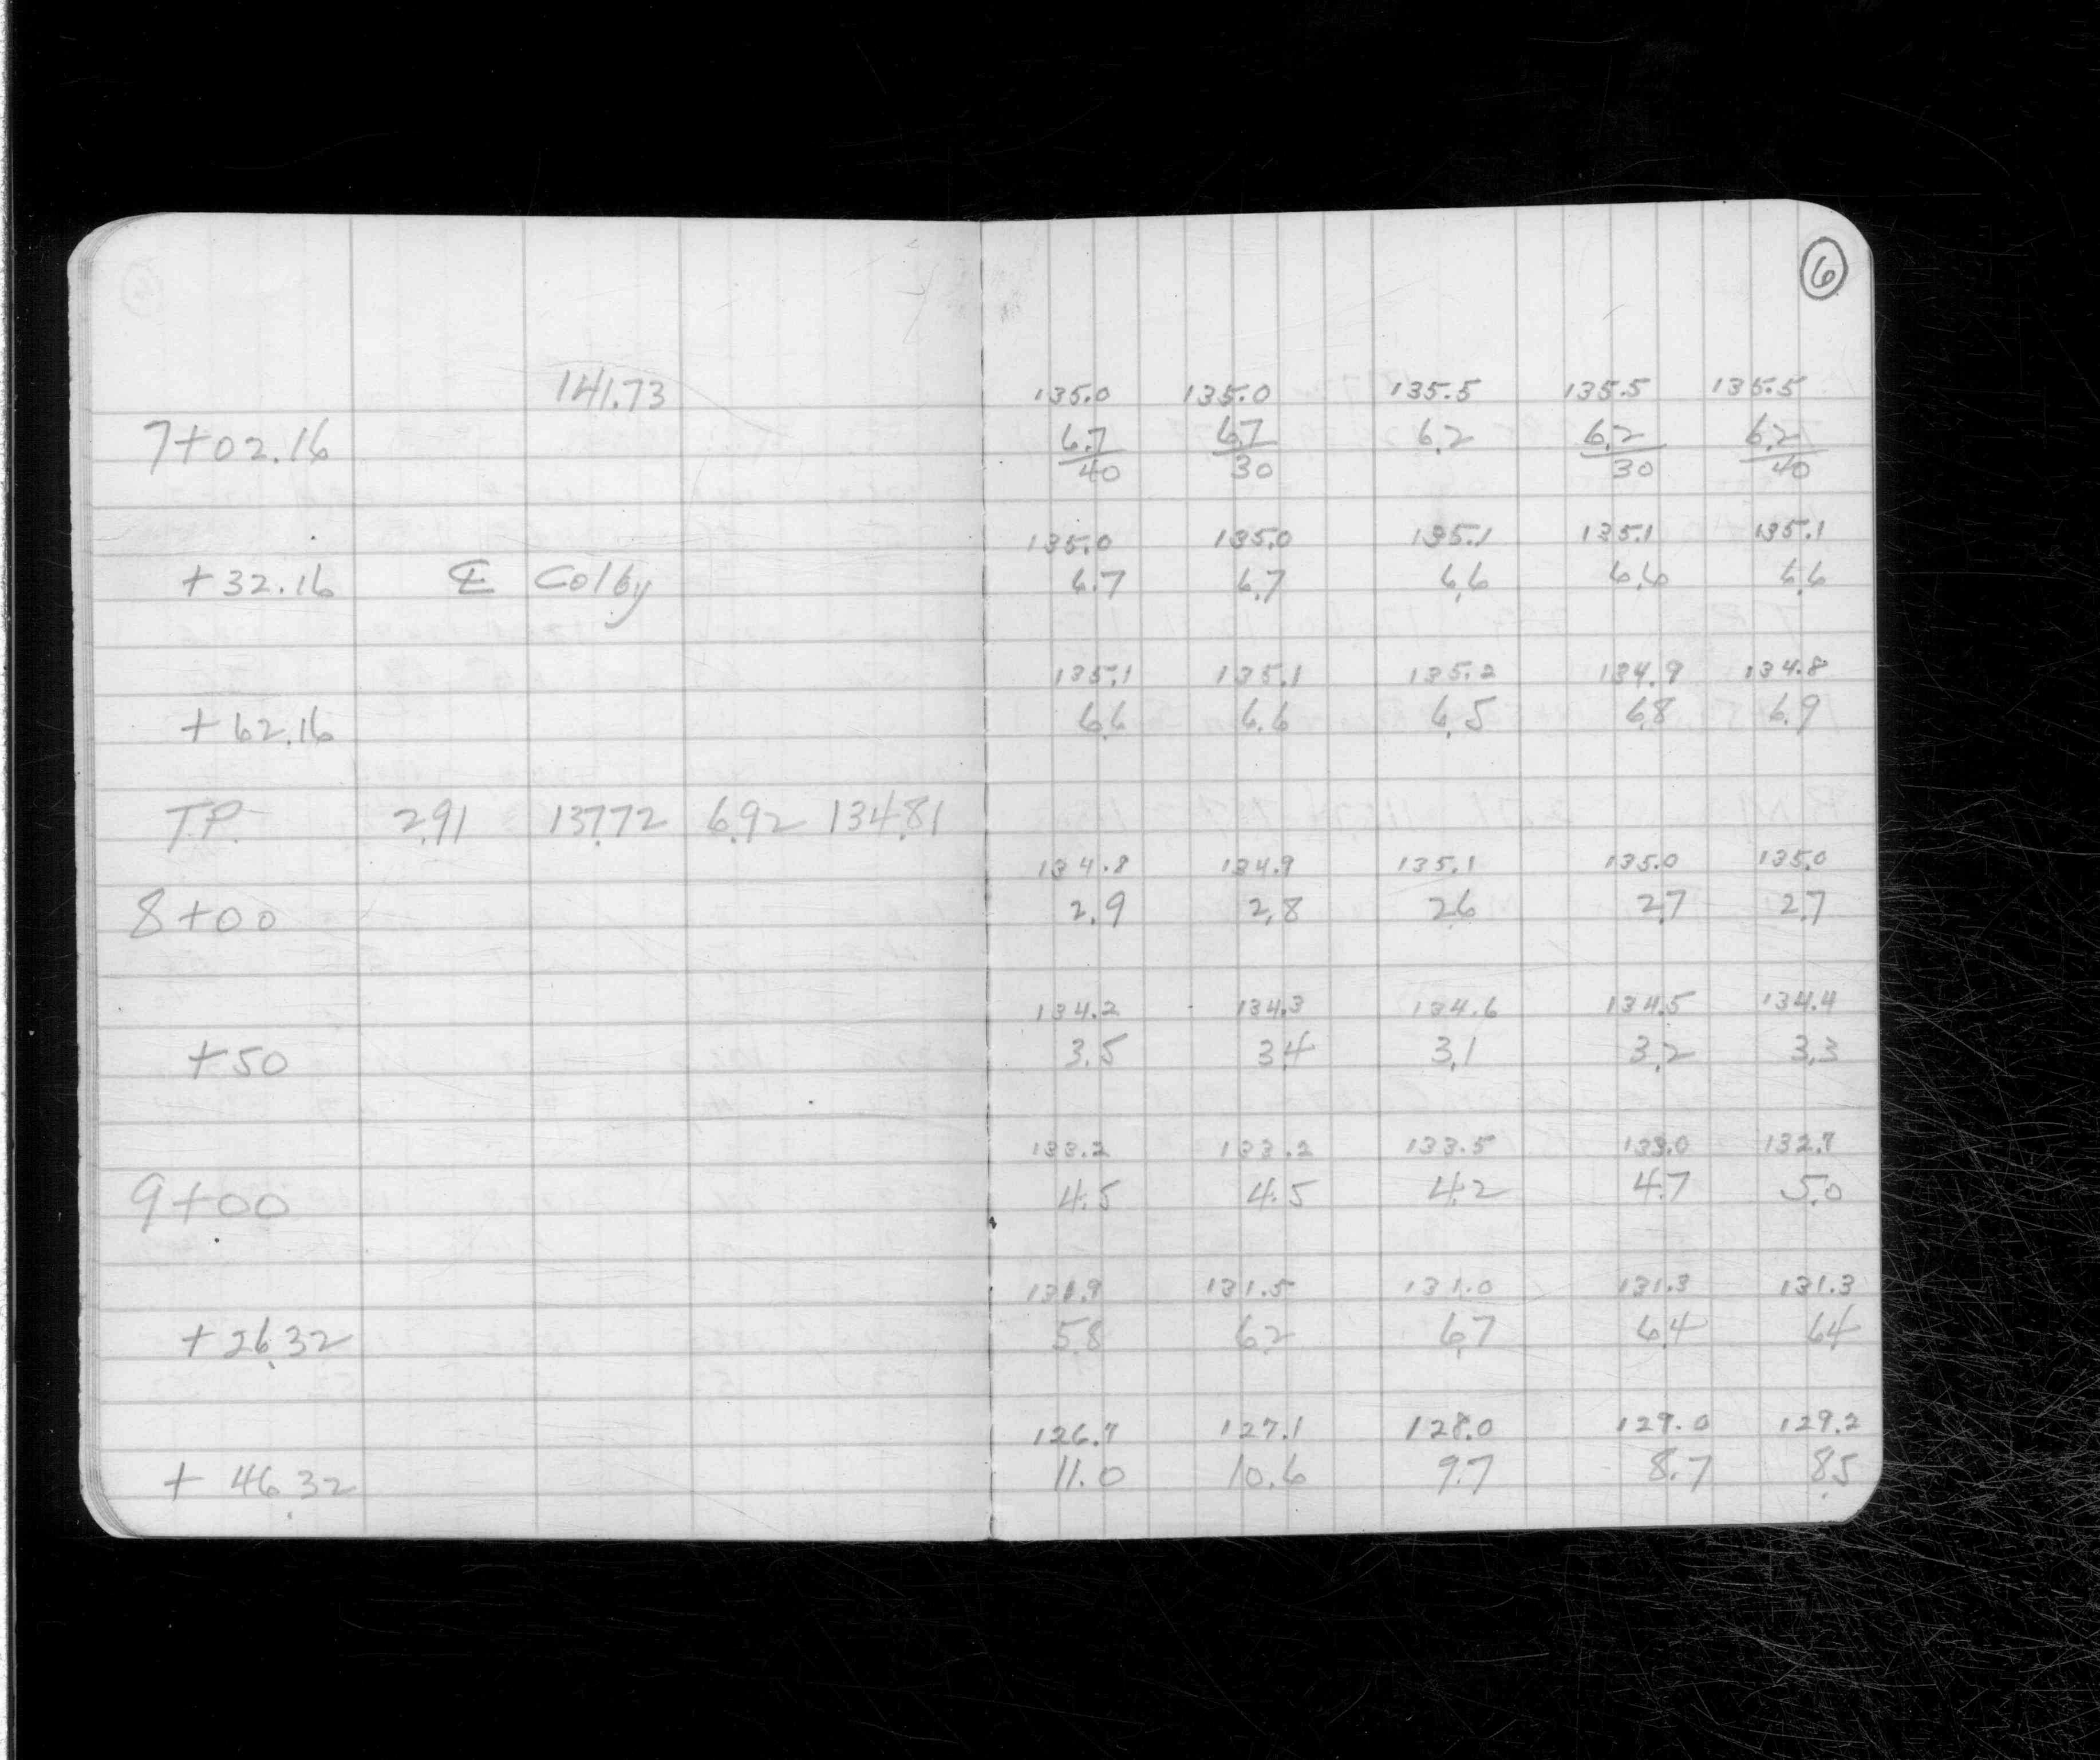 6
141.73 135.0 135.0 135.5 135.5 135.5
7+02.16 6.7/40 6.7/30 6.2 6.2/30 6.2/40
135.0 135.0 135.1 135.1 135.1
+32.16 ℄ Colby 6.7 6.7 6.6 6.6 6.6
135.1 135.1 135.2 134.9 134.8
+62.16 6.6 6.6 6.5 6.8 6.9
T.P. 2.91 137.72 6.92 134.81
134.8 134.9 135.1 135.0 135.0
8+00 2.9 2.8 2.6 2.7 2.7
134.2 134.3 134.6 134.5 134.4
+50 3.5 3.4 3.1 3.2 3.3
133.2 133.2 133.5 133.0 132.7
9+00 4.5 4.5 4.2 4.7 5.0
131.9 131.5 131.0 131.3 131.3
+26.32 5.8 6.2 6.7 6.4 6.4
126.7 127.1 128.0 129.0 129.2
+46.32 11.0 10.6 9.7 8.7 8.5